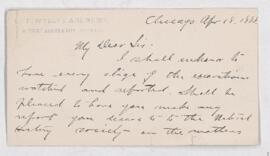 Chicago Apr 18. 188
My Dear Sir.
I shall endeavor to
have every stage of the excavations
watched and reported. Shall be
pleased to have you make any
report you desire to to the Natural
History society on the matters